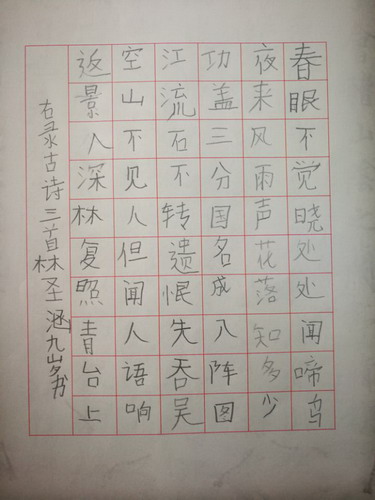 春眠不觉晓处处闻啼鸟
夜来风雨声花落知多少
功盖三分国名成八阵图
江流石不转遗恨失吞吴
空山不见人但闻人语响
返景入深林复照青台上
右录古诗三首林圣涵九岁书